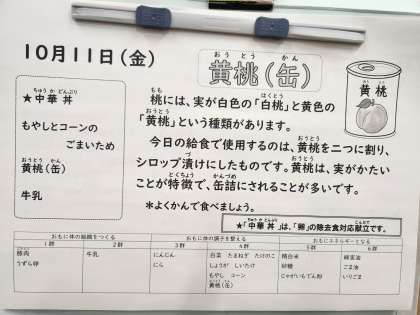 10月11日(金)
黄桃(缶)
おう とう かん
★中華丼
ちゅう か どんぶり
もやしとコーンの
ごまいため
黄桃(缶)
おうとう かん
牛乳
桃には、実が白色の「白桃」と黄色の
「黄桃」という種類があります。
今日の給食で使用するのは、黄桃を二つに割り、
シロップ漬けにしたものです。黄桃は、実がかたい
ことが特徴で、缶詰にされることが多いです。
*よくかんで食べましょう。
黄桃
★「中華丼」は、「卵」の除去食対応献立です。
おもに体の組織をつくる おもに体の調子を整える おもにエネルギーとなる
1群 2群 3群 4群 5群 6群
豚肉 牛乳 にんじん 白菜 たまねぎ たけのこ 精白米
うずら卵 にら しょうが しいたけ 砂糖 ごま油
もやし コーン じゃがいもでん粉 いりごま
黄桃(缶)